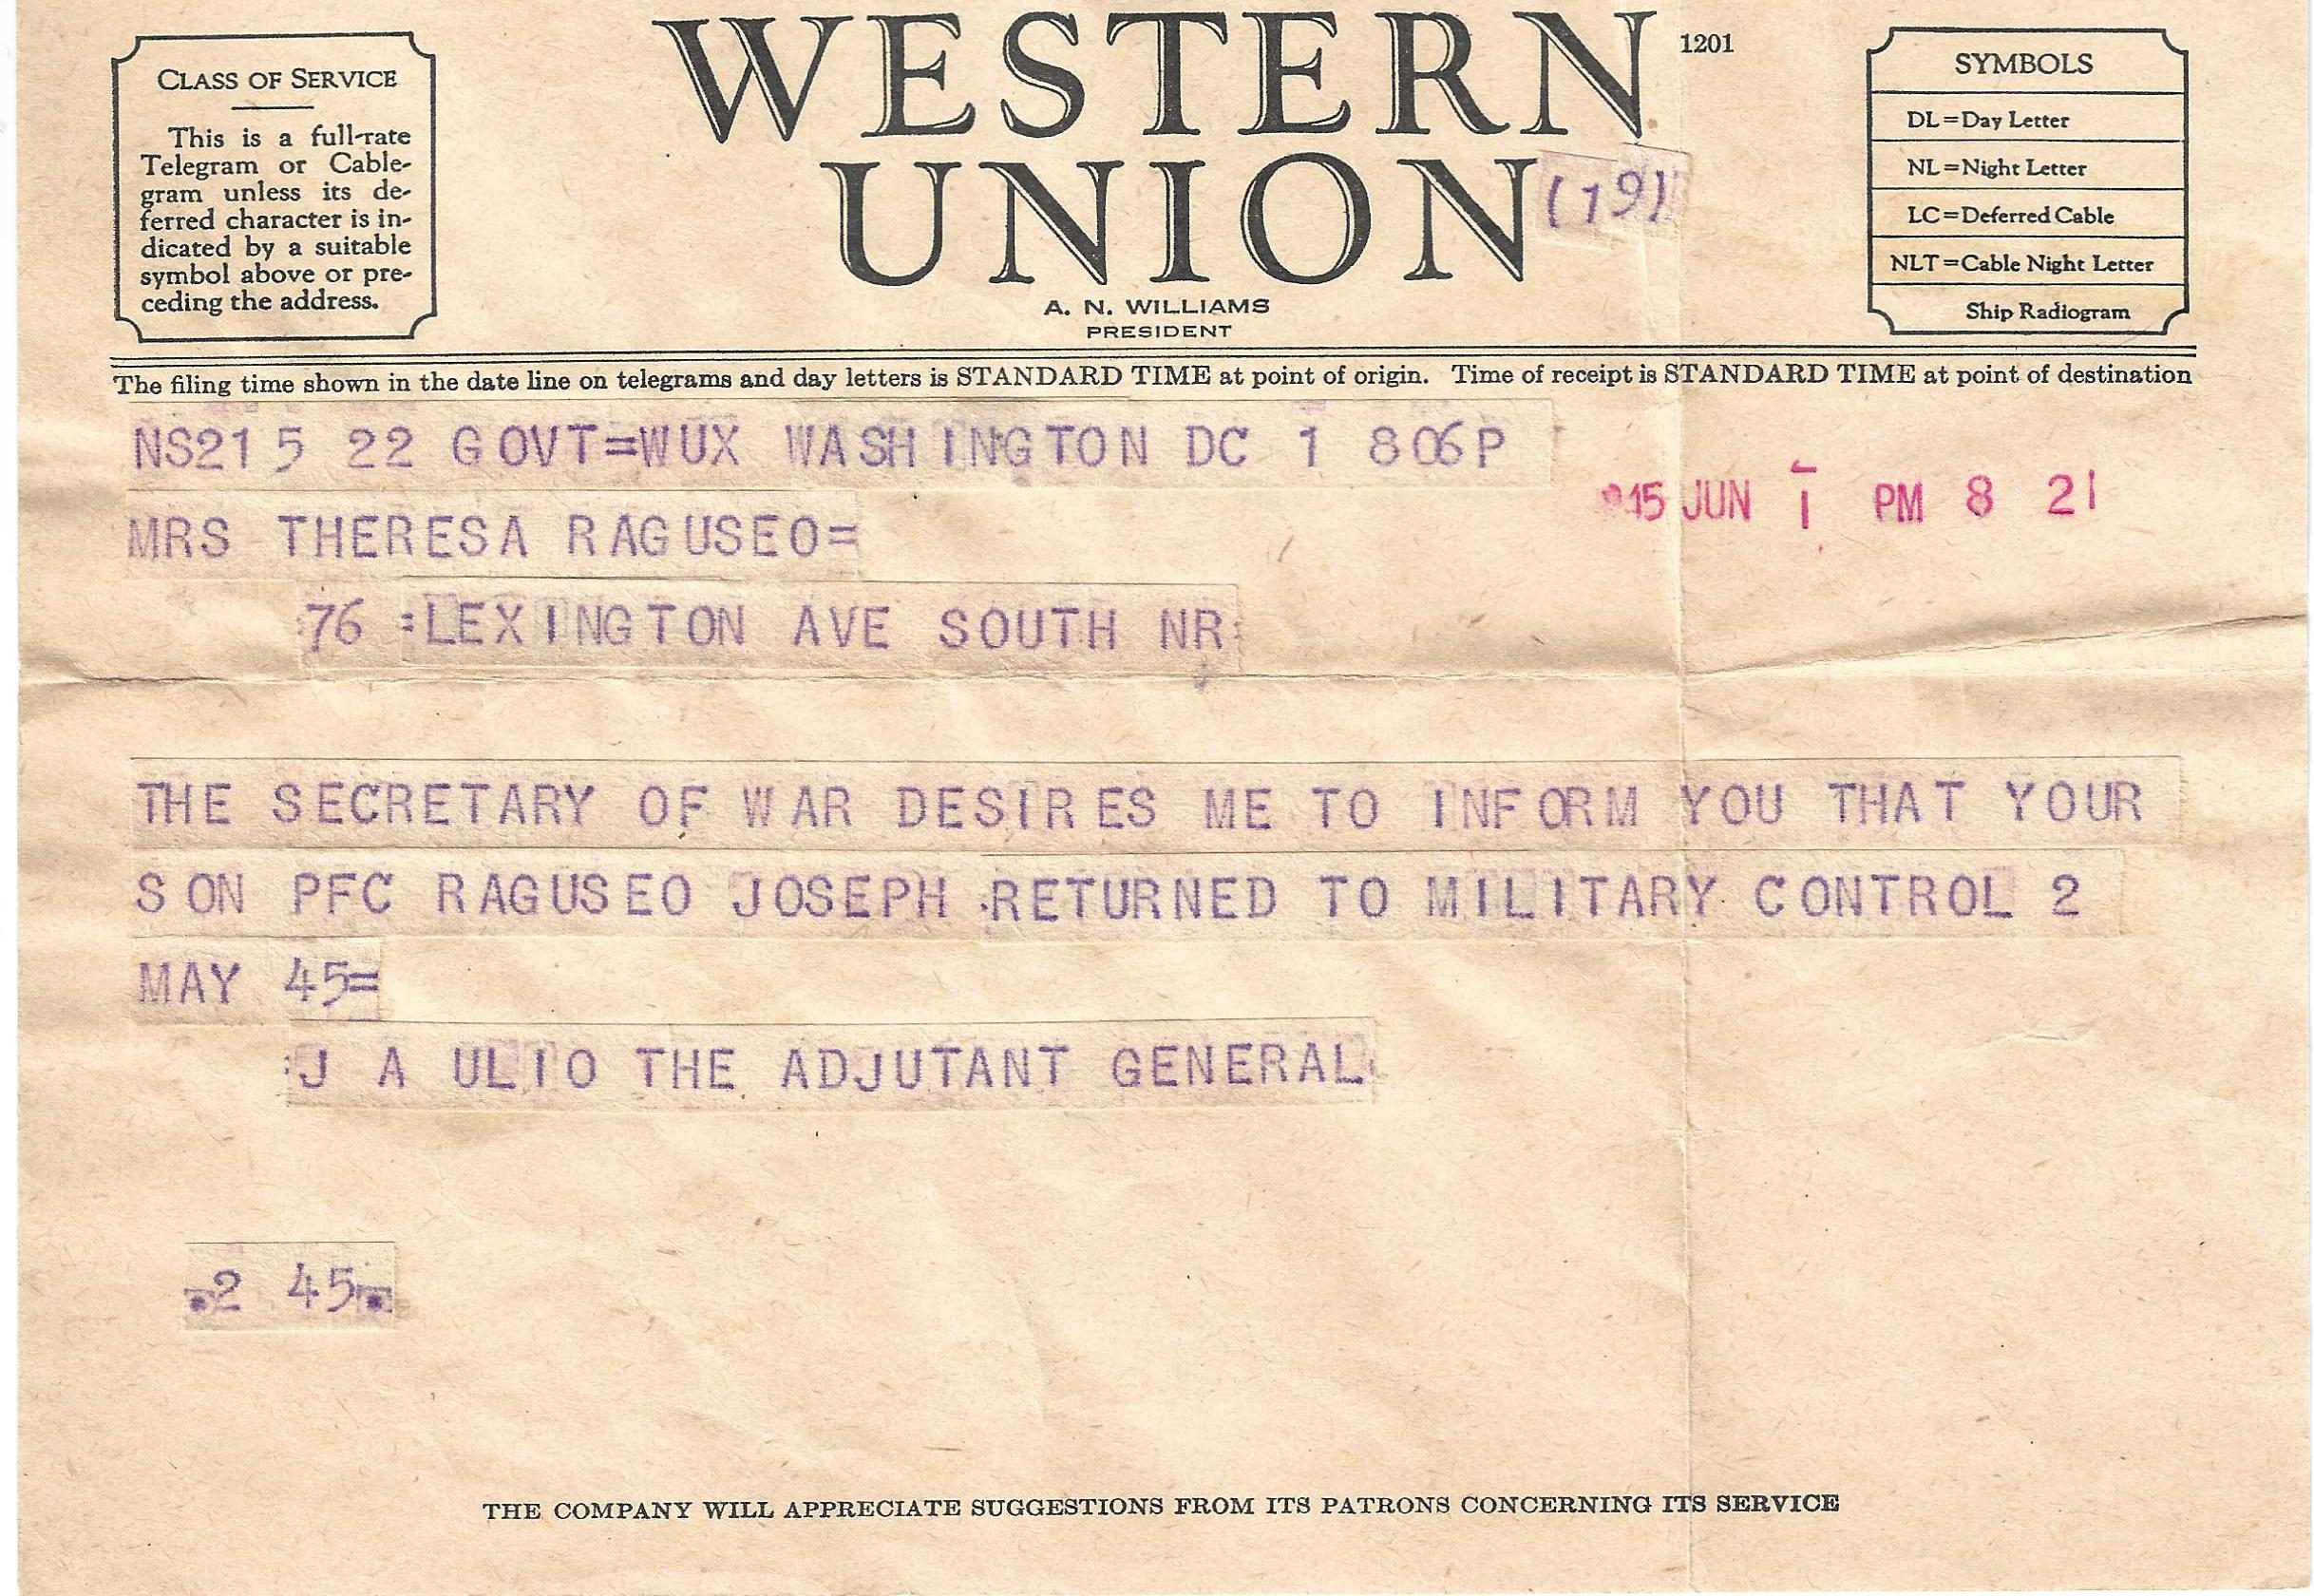 CLASS OF SERVICE
This is a full-rate
Telegram or Cable-
gram unless its de-
ferred character is in-
dicated by a suitable
symbol above or pre-
ceding the address.
WESTERN
UNION
1201
(19)
A. N. WILLIAMS
PRESIDENT
SYMBOLS
DL=Day Letter
NL=Night Letter
LC=Deferred Cable
NLT=Cable Night Letter
Ship Radiogram
The filing time shown in the date line on telegrams and day letters is STANDARD TIME at point of origin. Time of receipt is STANDARD TIME at point of destination
NS215 22 GOVT=WUX WASHINGTON DC 1 806P
45 JUN 1 PM 8 21
MRS THERESA RAGUSEO=
76 :LEXINGTON AVE SOUTH NR:
THE SECRETARY OF WAR DESIRES ME TO INFORM YOU THAT YOUR
SON PFC RAGUSEO JOSEPH RETURNED TO MILITARY CONTROL 2
MAY 45=
:J A ULIO THE ADJUTANT GENERAL
2 45
THE COMPANY WILL APPRECIATE SUGGESTIONS FROM ITS PATRONS CONCERNING ITS SERVICE